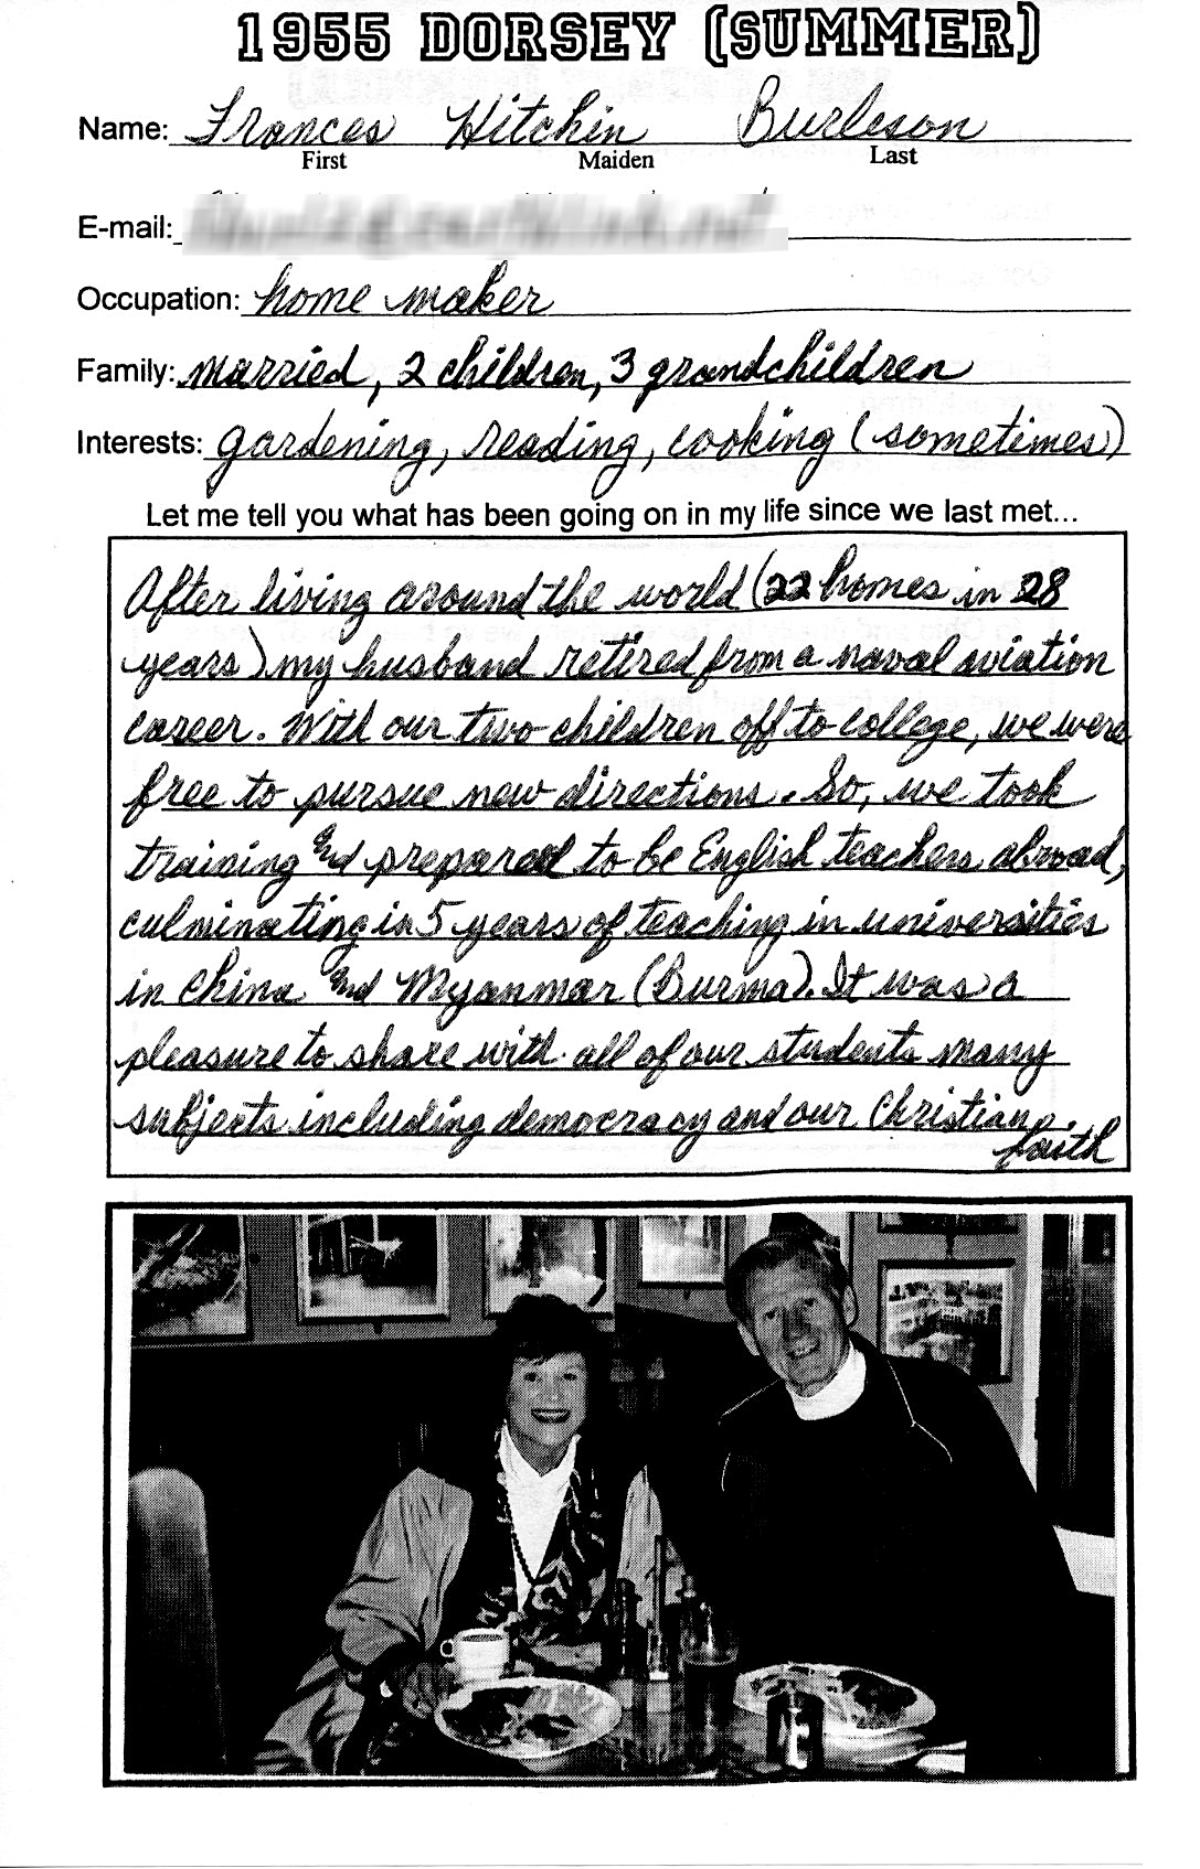 1955 DORSEY (SUMMER)
Name: Frances Hitchin Burleson
First Maiden Last
E-mail:
Occupation: home maker
Family: married, 2 children, 3 grandchildren
Interests: gardening, reading, cooking (sometimes)
Let me tell you what has been going on in my life since we last met...
After living around the world (22 homes in 28
years) my husband retired from a naval aviation
career. With our two children off to college, we were
free to pursue new directions. So, we took
training and prepared to be English teachers abroad,
culminating in 5 years of teaching in universities
in China and Myanmar (Burma). It was a
pleasure to share with all of our students many
subjects including democracy and our Christian
faith